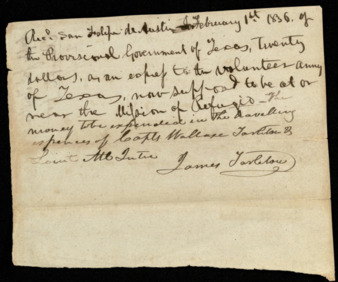 Recd. San Felipe de Austin February 1st 1836, of
the Provisional Government of Texas, Twenty
dollars, as an express to the volunteer army
of Texas, now supposed to be at or
near the Mission of Refugio. The
money to be expended in the travelling
expences of Capts Wallace Tarleton &
Lieut
James Tarleton